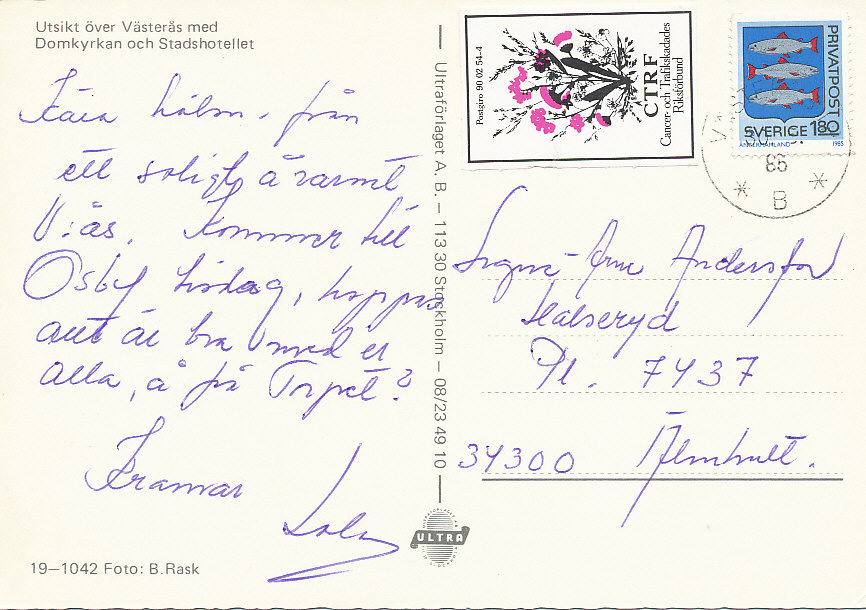 Utsikt över Västerås med
Domkyrkan och Stadshotellet
Kära hälsn. från
ett soligt å varmt
V:ås. Kommer till
Osby tisdag, hoppas
allt är bra med er
alla, å på Torpet?
Kramar
19–1042 Foto: B.Rask
Ultraförlaget A. B. – 113 30 Stockholm – 08/23 49 10
ULTRA
Postgiro 90 02 54-4
CTRF
Cancer- och Trafikskadades
Riksförbund
PRIVATPOST
SVERIGE 180
ÅNGERMANLAND 1985
86
* B *
Signe- Arne Andersson
Halseryd
Pl. 7437
34300 Älmhult.